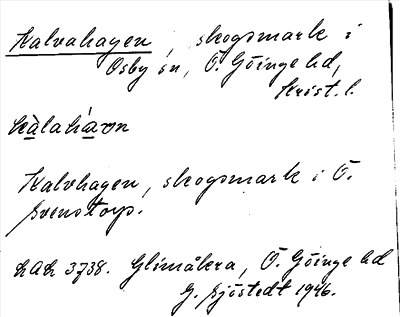 Kalvahagen, skogsmark i
Osby sn, Ö. Göinge hd,
Krist. l.
kàlahávɔn
Kalvhagen, skogsmark i Ö.
Svenstorp.
LAL 3738. Glimåkra, Ö. Göinge hd
G. Sjöstedt 1946.